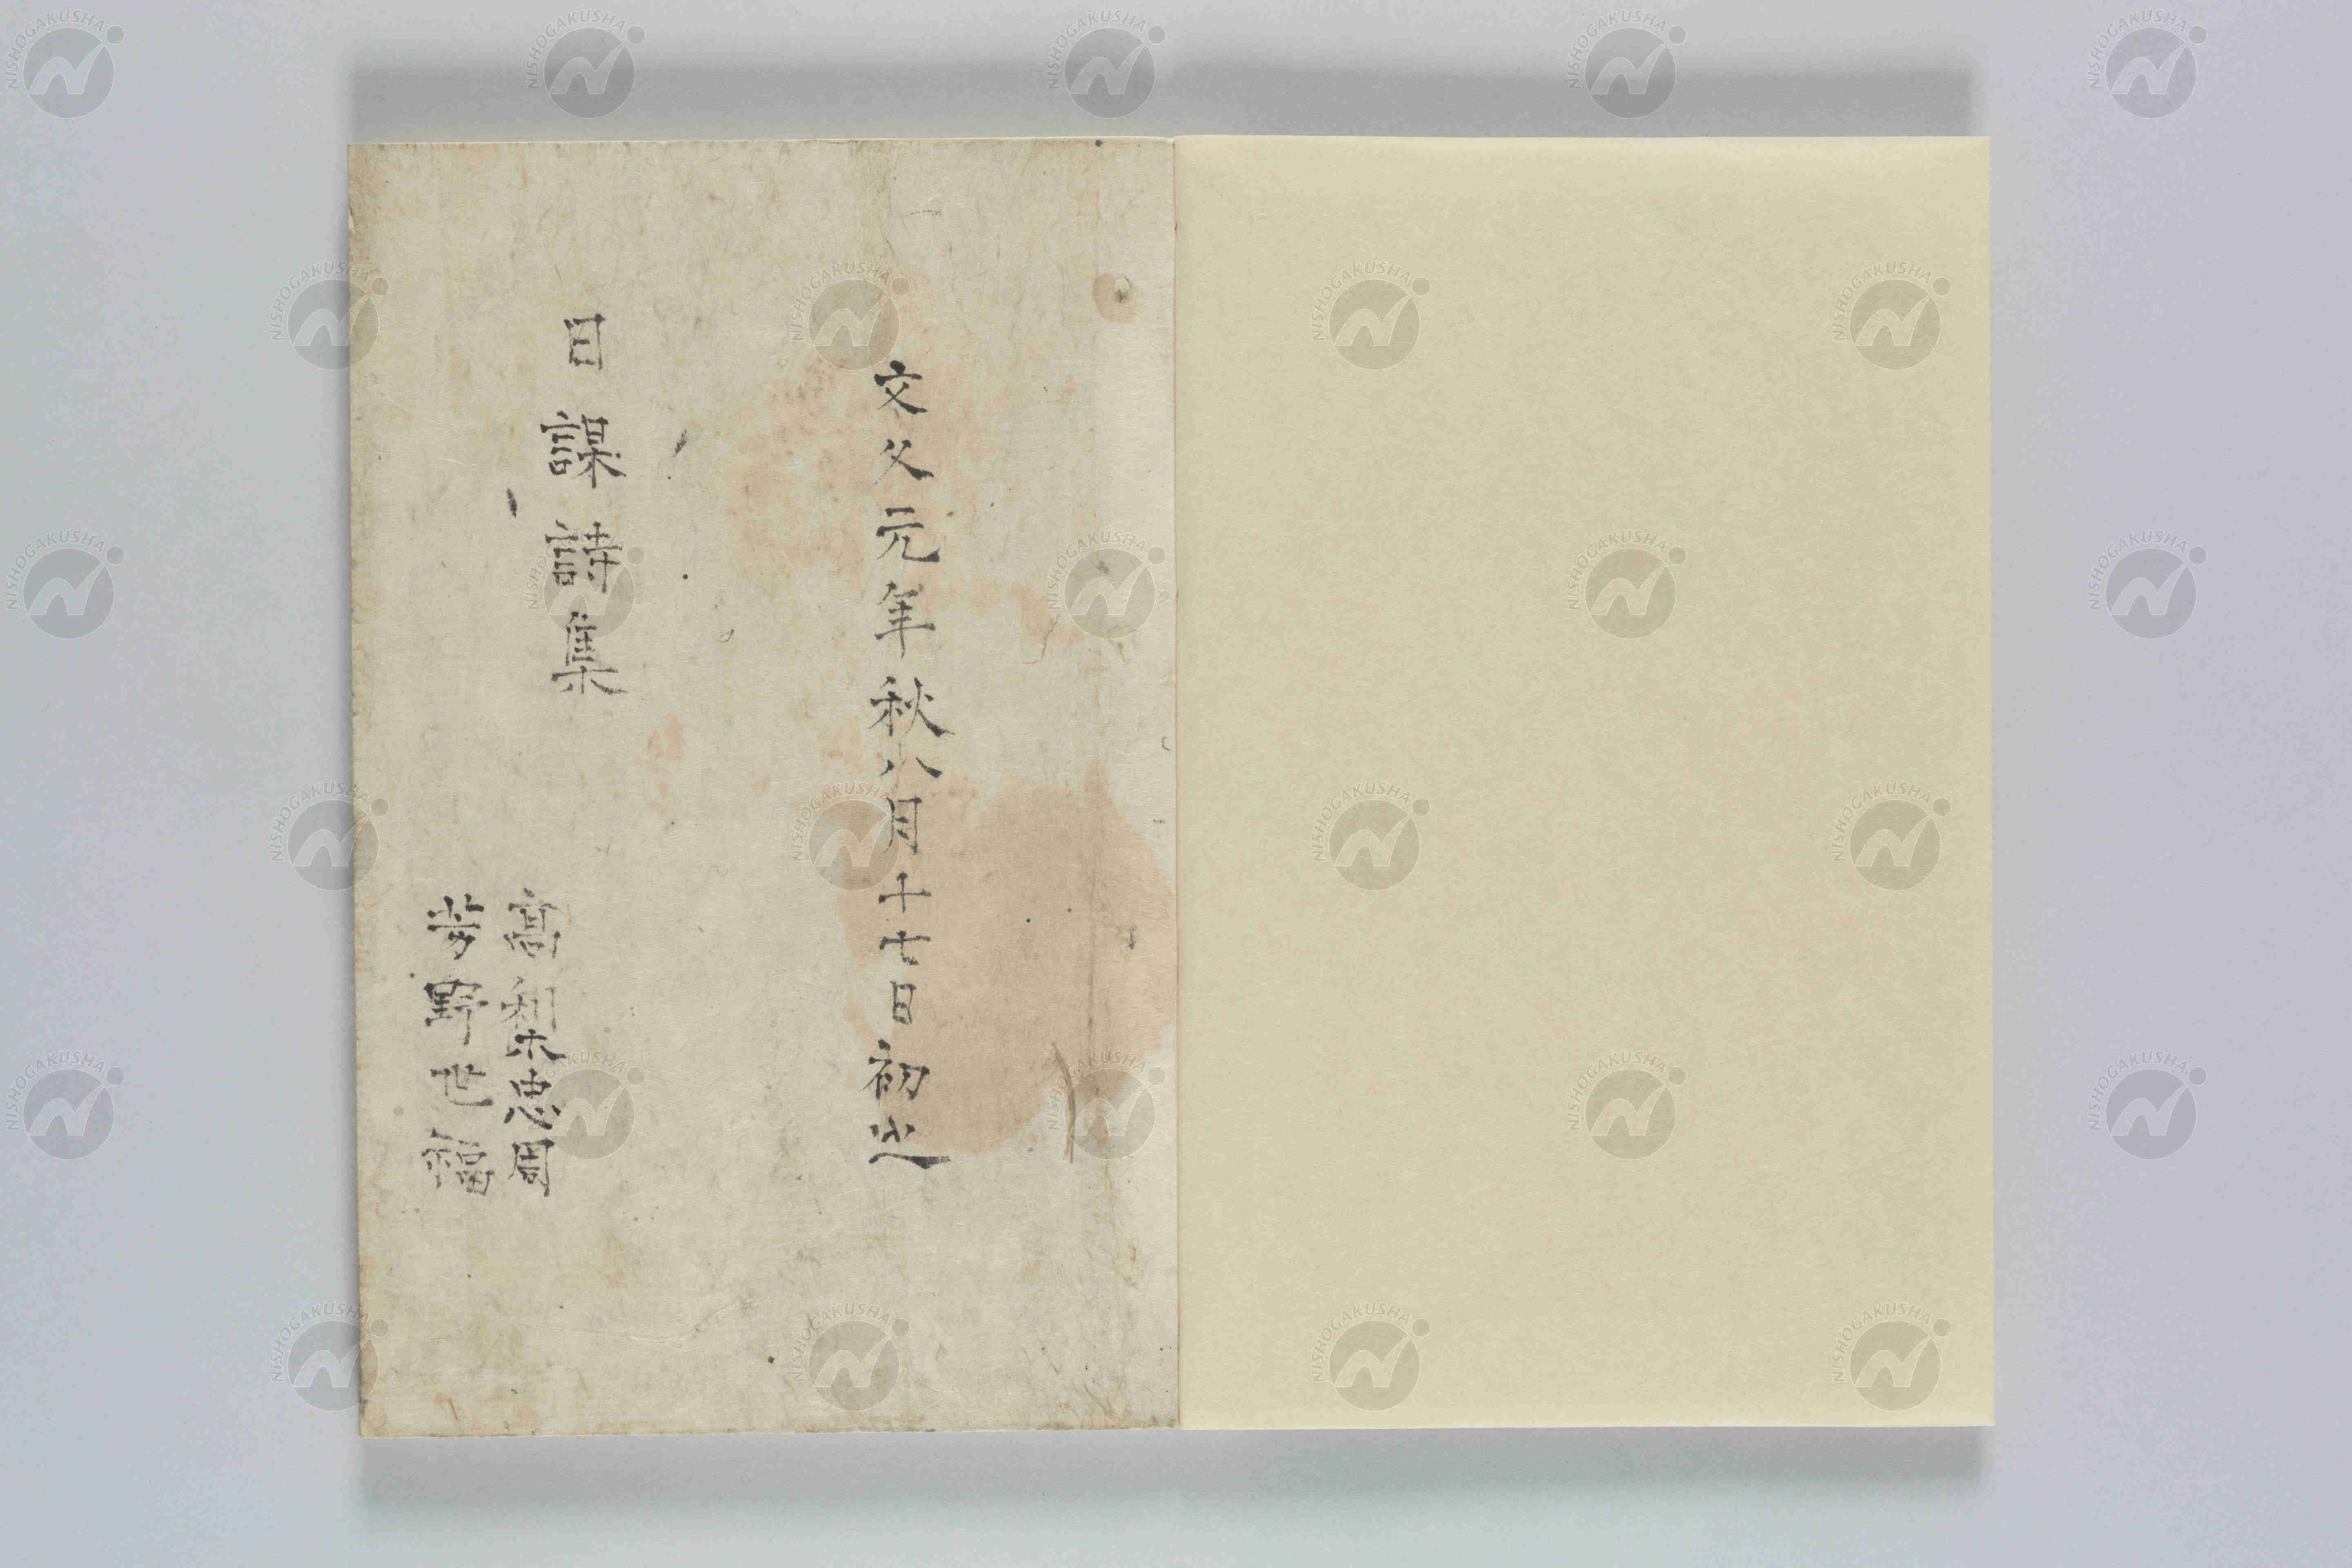 文久元年秋八月十七日初出
日課詩集
高梨忠周
芳野世福
NISHOGAKUSHA